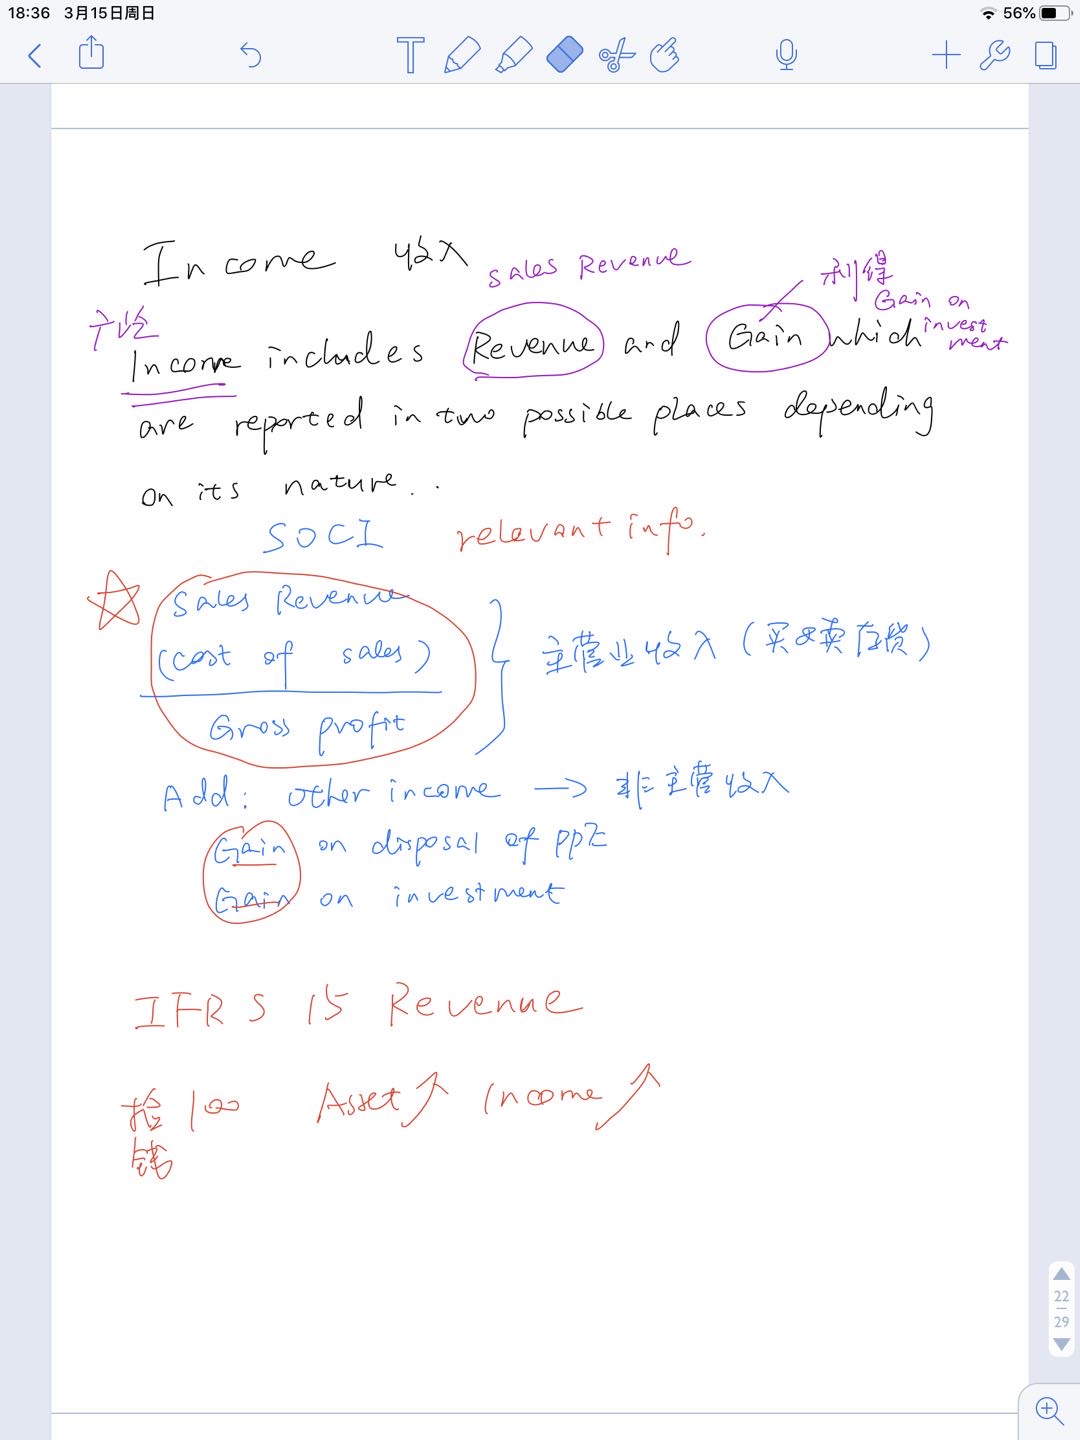 18:36 3月15日周日 56%
Income 收入
sales Revenue
利得
Gain on investment
广论
Income includes Revenue and Gain which
are reported in two possible places depending
on its nature...
SOCI relevant info.
Sales Revenue
(cost of sales)
主营业收入(买&卖存货)
Gross profit
Add: other income → 非主营收入
Gain on disposal of PPE
Gain on investment
IFRS 15 Revenue
拾 100 Asset↗ Income↗
钱
22
29